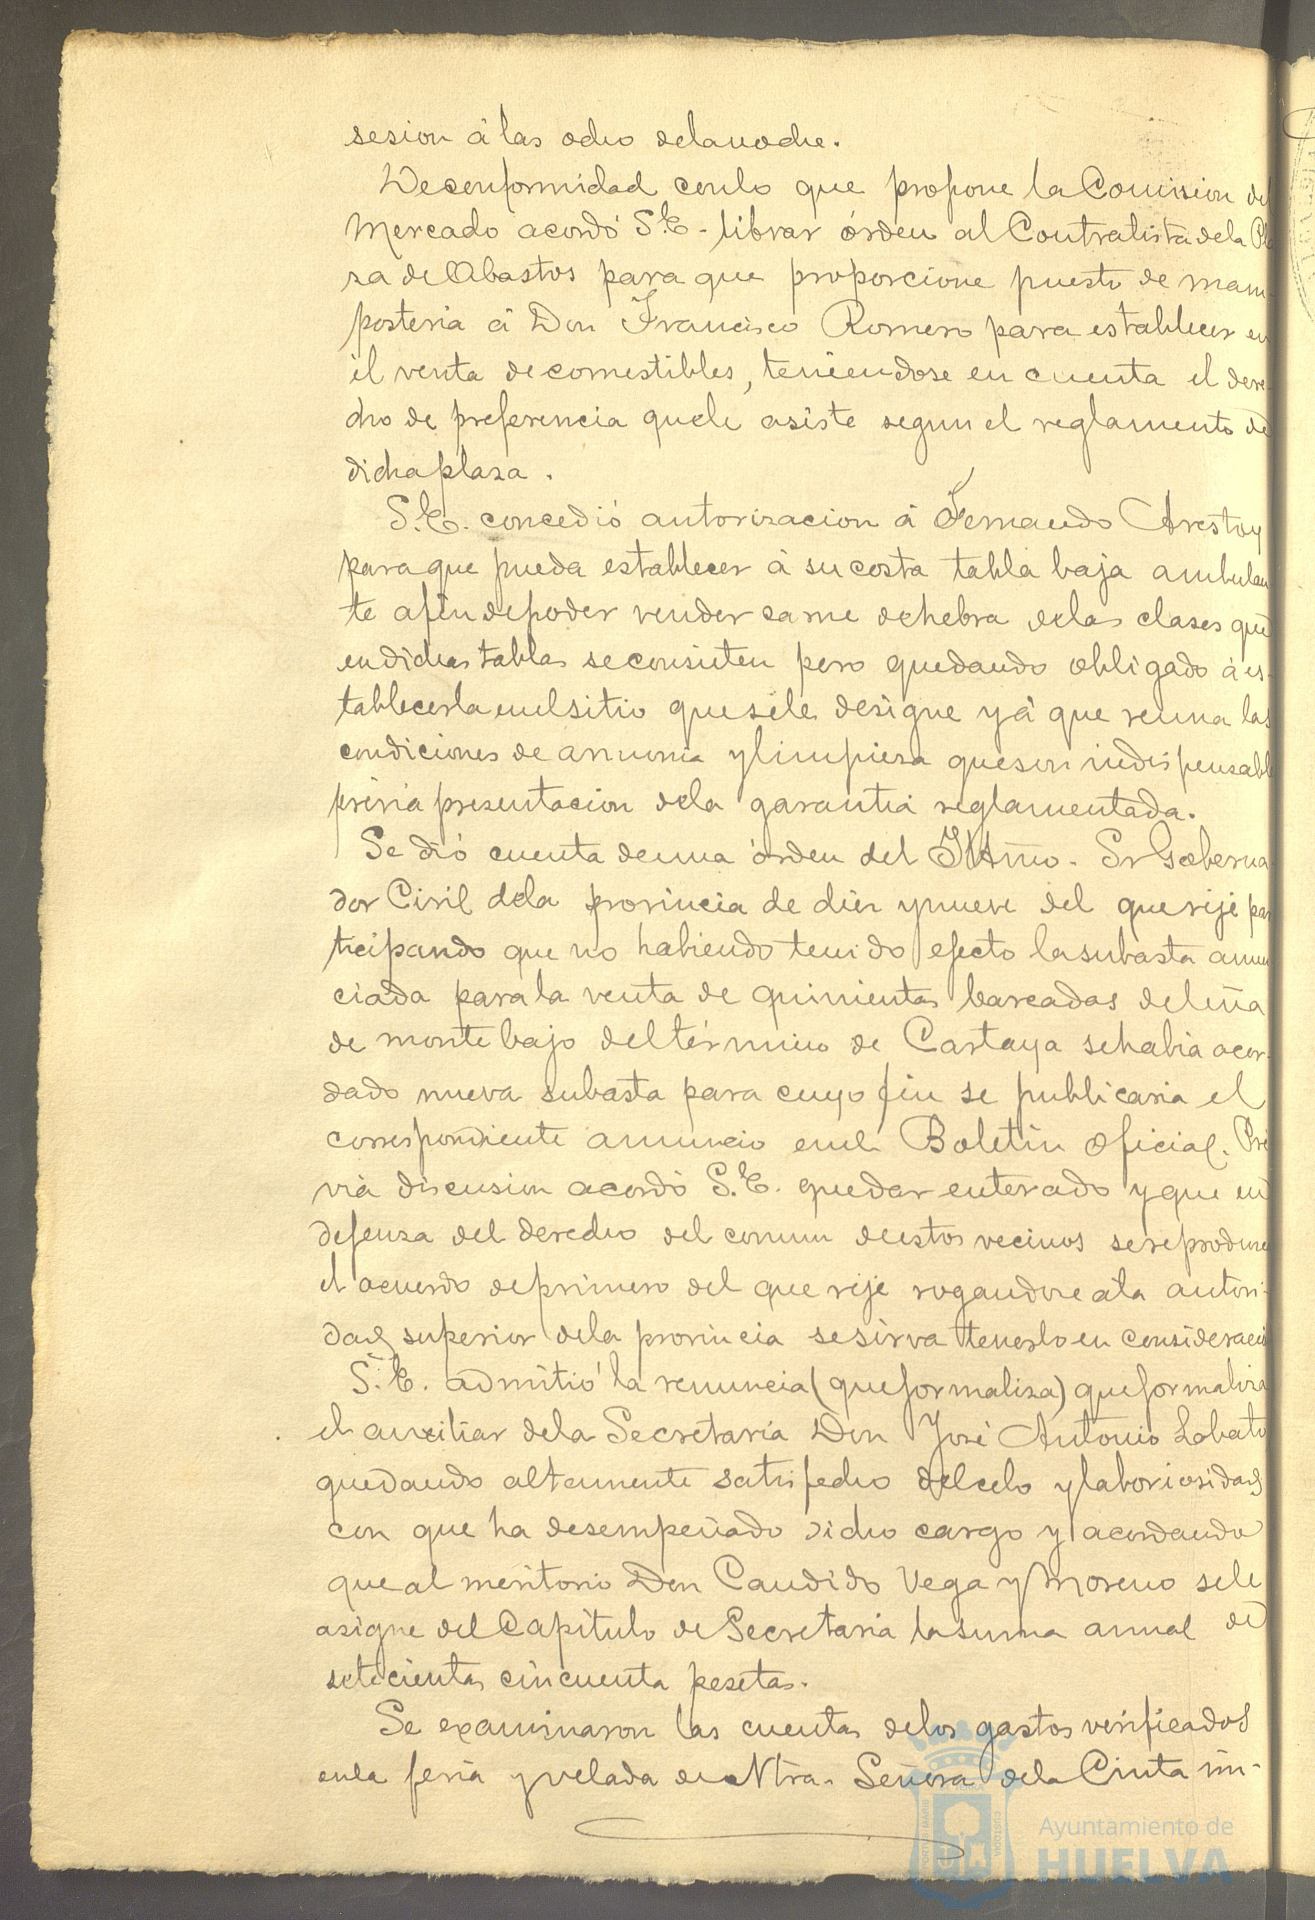 sesion á las ocho delanoche.
Deconformidad conlo que propone la Comision del
Mercado acordó S.E. librar órden al Contratista dela Pla
za de Abastos para que proporcione puesto de mam
posteria á Don Francisco Romero para establecer en
él venta de comestibles, teniendose en cuenta el dere
cho de preferencia quele asiste segun el reglamento de
dicha plaza.
S.E. concedió autorizacion á Fernando Arestoy
para que pueda establecer á su costa tabla baja ambulan
te afin depoder vender carne dehebra delas clases que
endichas tablas seconsinten pero quedando obligado á es-
tablecerla enelsitio quesele designe y á que reuna las
condiciones de armonia y limpieza queson indispensabl
prévia presentacion dela garantia reglamentada.
Se dió cuenta deuna órden del Iltmo. Sr Goberna
dor Civil dela provincia de diez ynueve del querije par
ticipando que no habiendo tenido efecto lasubasta anun
ciada parala venta de quinientas barcadas deleña
de monte bajo deltérmino de Cartaya sehabia acor-
dado nueva subasta para cuyo fin se publicaria el
correspondiente anuncio enel Boletin oficial. Pré
via discusion acordó S.E. quedar enterado y que en
defensa del derecho del comun deestos vecinos sereproduce
el acuerdo deprimero del que rije rogandose ála autori-
dad superior dela provincia sesirva tenerlo en consideració
S.E. admitió la renuncia (queformaliza) queformaliza
el auxiliar dela Secretaria Don José Antonio Lobato
quedando altamente satisfecho delcelo y laboriosidad
con que ha desempeñado dicho cargo y acordando
que al meritorio Don Candido Vega y Moreno sele
asigne del Capítulo de Secretaria lasuma anual de
setecientas cincuenta pesetas.
Se examinaron las cuentas delos gastos verificados
enla feria y velada de Ntra. Señora dela Cinta im-
Ayuntamiento de
HUELVA